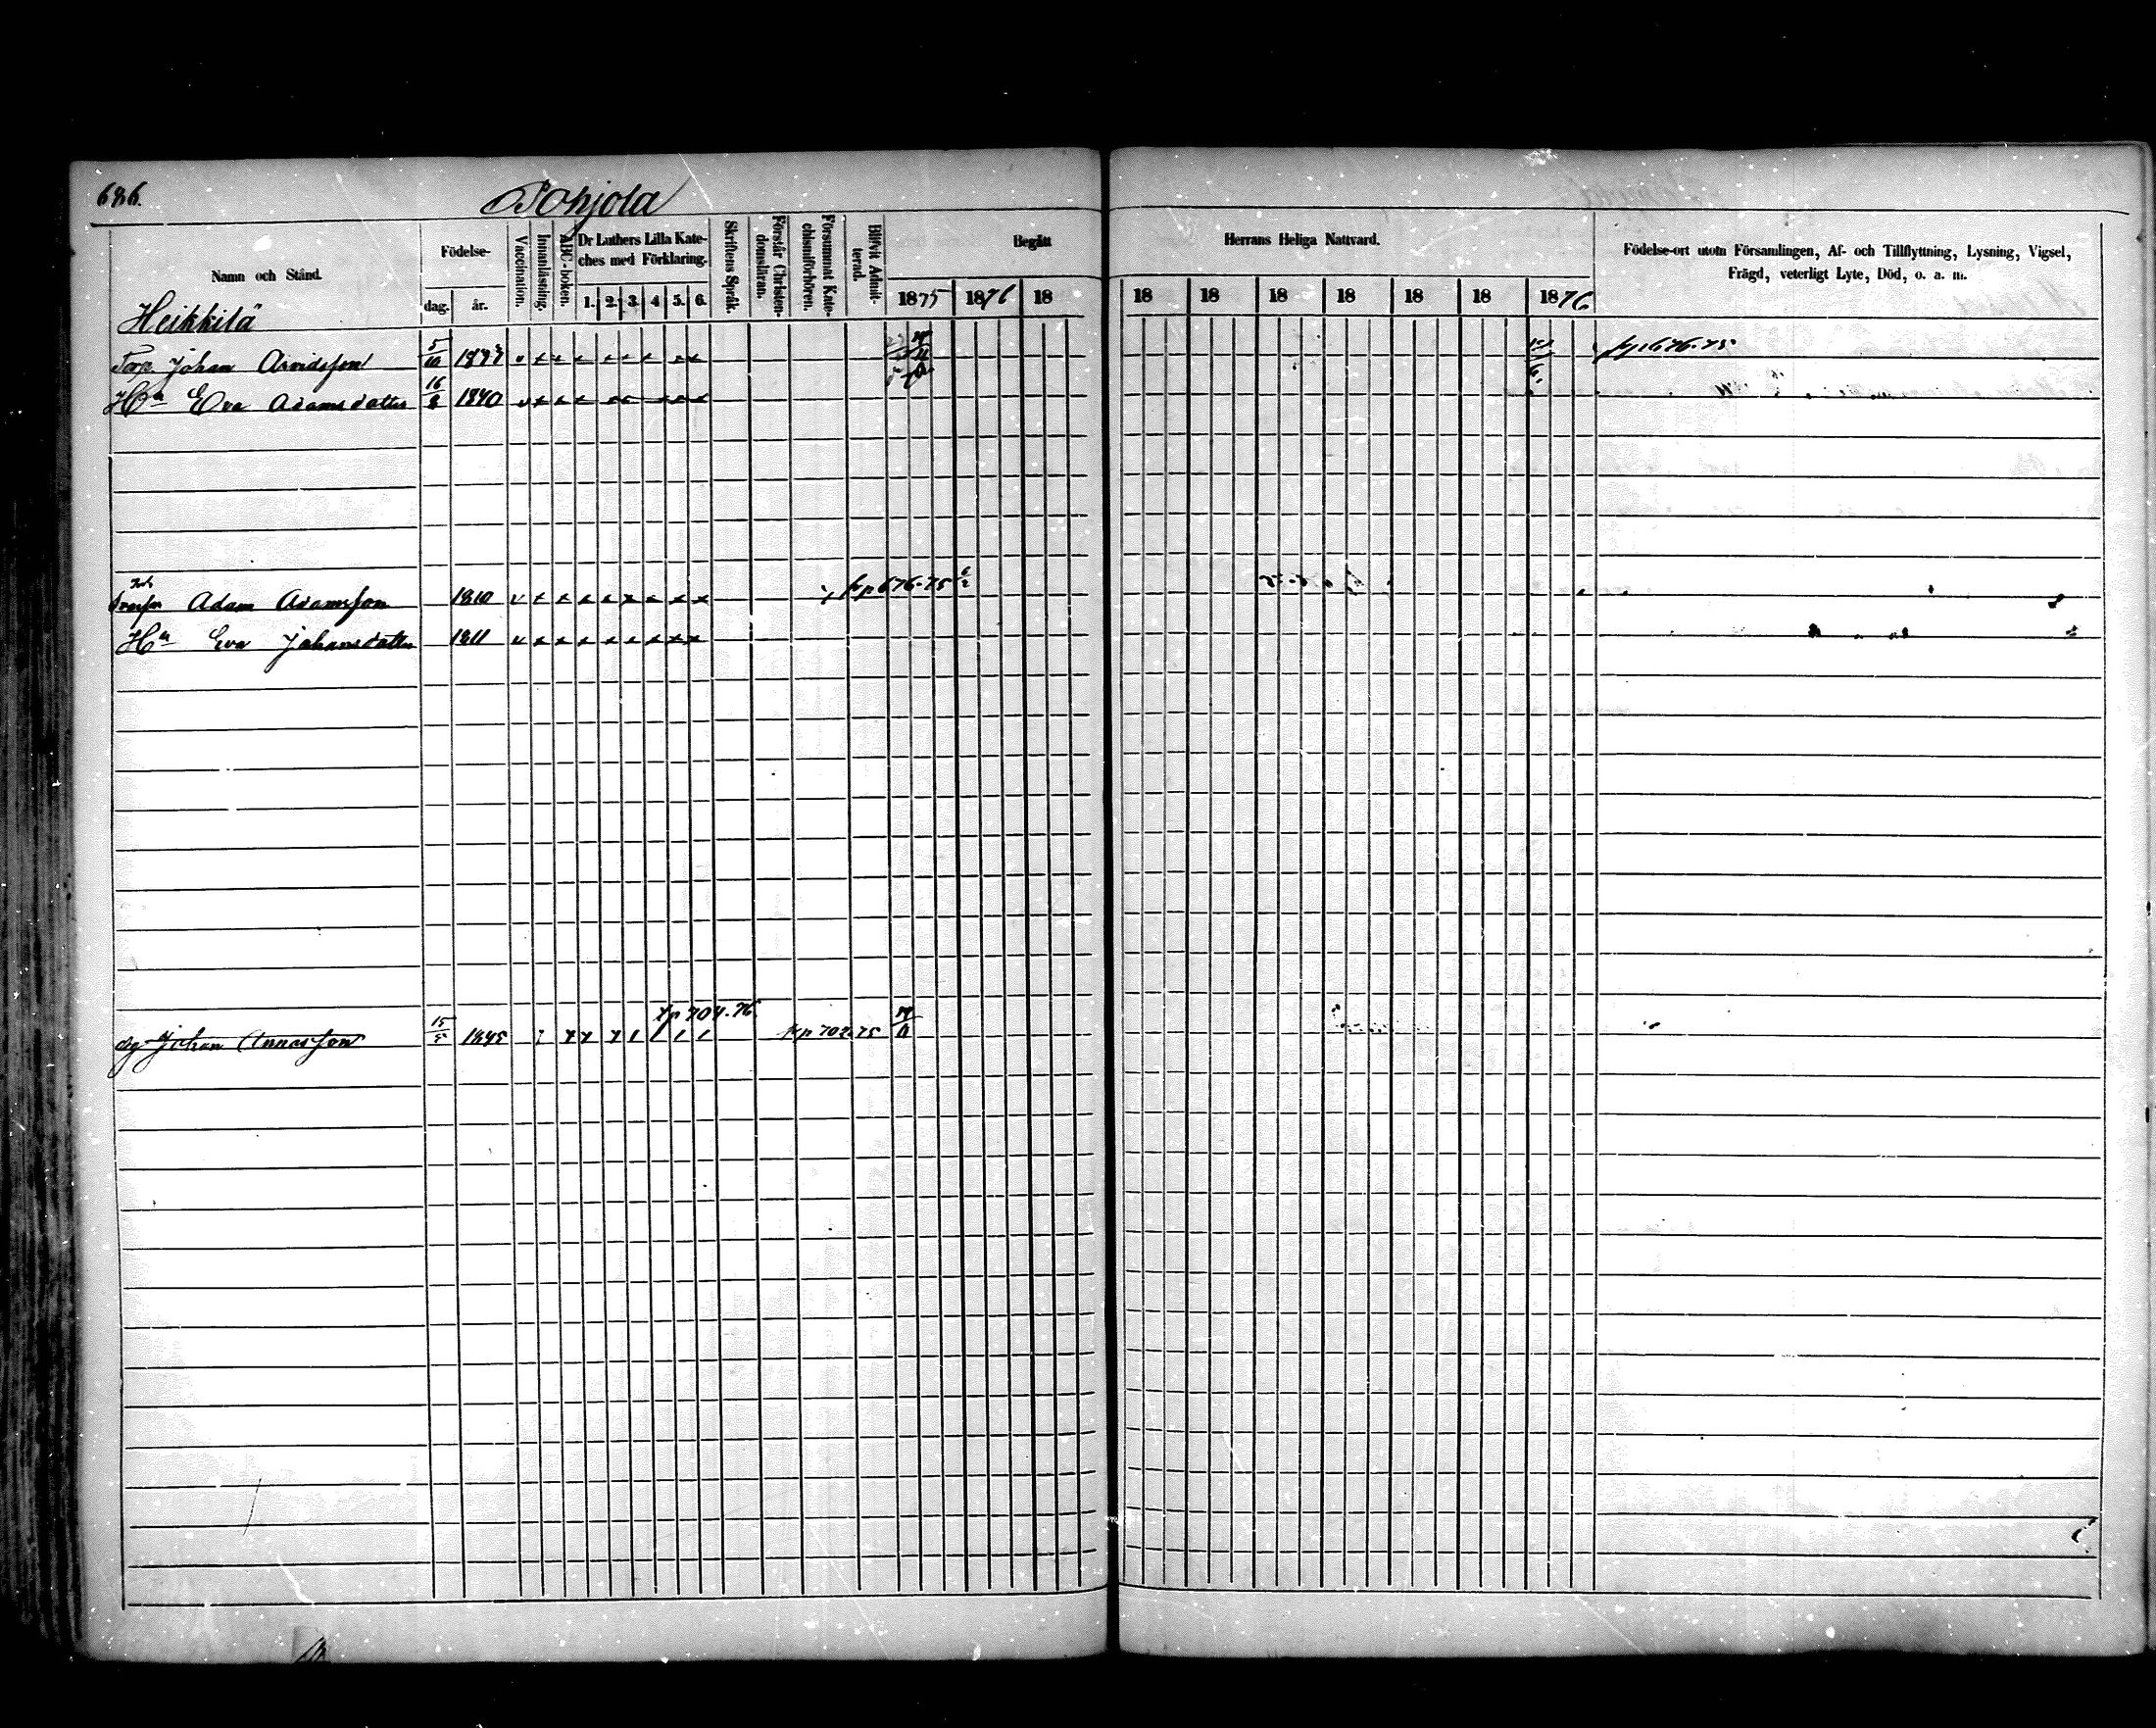 686.
Pohjola
Namn och Stånd.
Födelse-
dag. år.
Vaccination.
Innanläsning.
ABC-boken.
Dr Luthers Lilla Kate-
ches med Förklaring.
1. 2. 3. 4 5. 6.
Skriftens Språk.
Förstår Christen-
domsläran.
Försummat Kate-
chismiförhören.
Blifvit Admit-
terad.
Begått
1875 1876 18
Herrans Heliga Nattvard.
18 18 18 18 18 18 1876
Födelse-ort utom Församlingen, Af- och Tillflyttning, Lysning, Vigsel,
Frägd, veterligt Lyte, Död, o. a. m.
Heikkilä
Torp. Johan Arvidsson 5/10 fr p 676.75
Hu Eva Adamsdotter 16/8 1840
Adam Adamsson 1810 fr p 676.75
Hu Eva Johansdotter 1811
fr p 704.76
drg Johan Annasson 15/5 1845 fr p 702.75